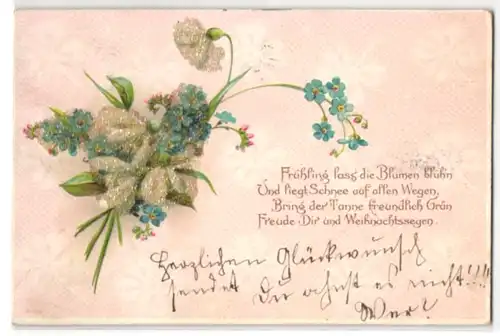 Frühling lass die Blumen blühn
Und liegt Schnee auf allen Wegen,
Bring der Tanne freundlich Grün
Freude Dir und Weihnachtssegen.
Herzlichen Glückwunsch
sendet Du ahnst es nicht!!!!
Wer?